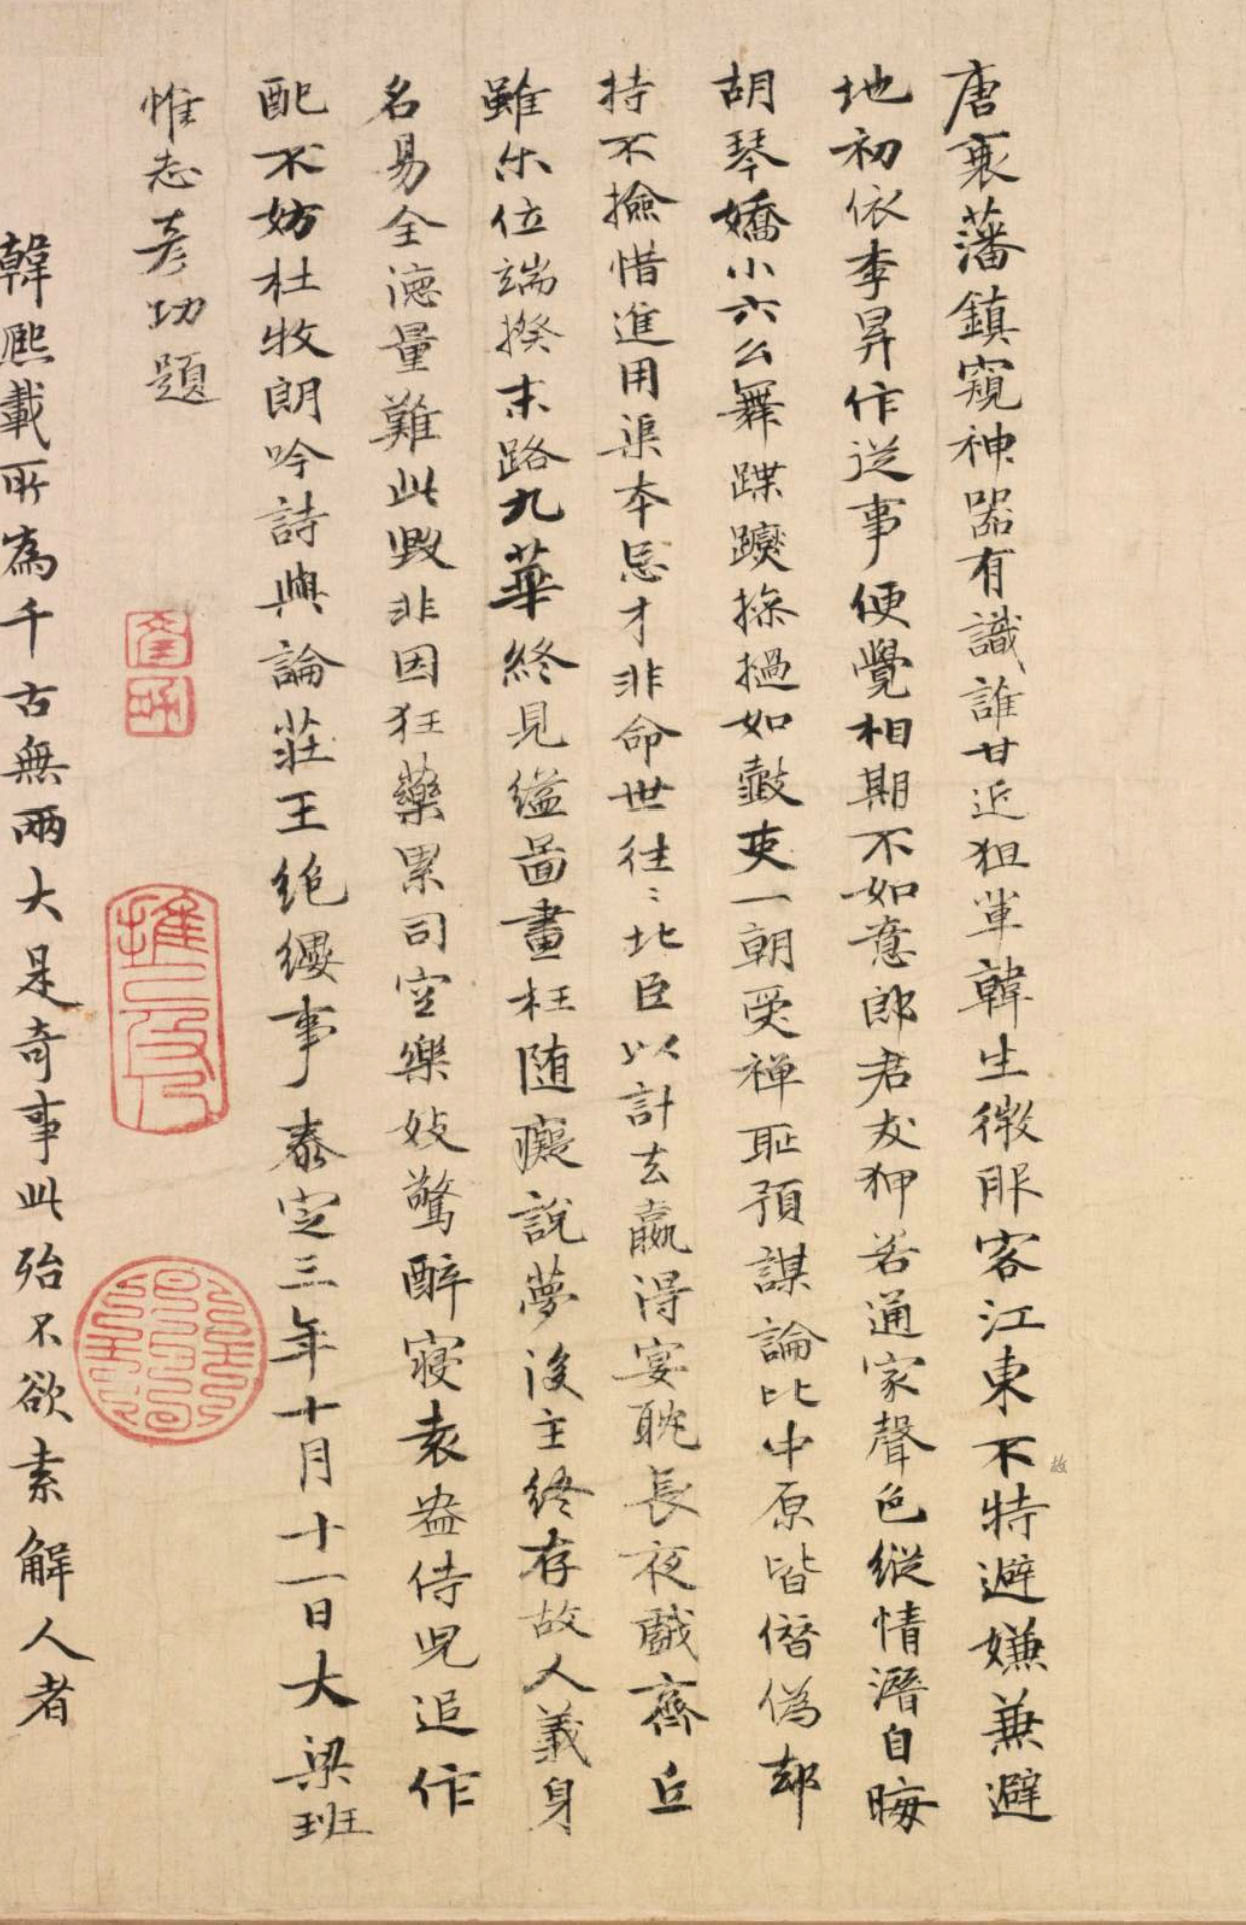 唐衰藩鎮窺神器有識誰甘近狙軰韓生微服客江東不特避嫌兼避
故
地初依李昪作從事便覺相期不如意郎君友狎若通家聲色縱情潛自晦
胡琴嬌小六么舞蹀躞摻撾如鼓吏一朝受禪恥預謀論比中原皆僭偽却
持不撿惜進用渠本忌才非命世往〻北臣以計去贏得宴耽長夜戲齊丘
雖尒位端揆末路九華終見縊畵畫枉随癡說夢後主終存故人義身
名易全德量難此毀非因狂藥累司空樂妓驚醉寢袁盎侍兒追作
配不妨杜牧朗吟詩與論莊王絶纓事泰定三年十月十一日大梁班
惟志彦功題
彦功
韓熙載所為千古無兩大是奇事此殆不欲索解人者